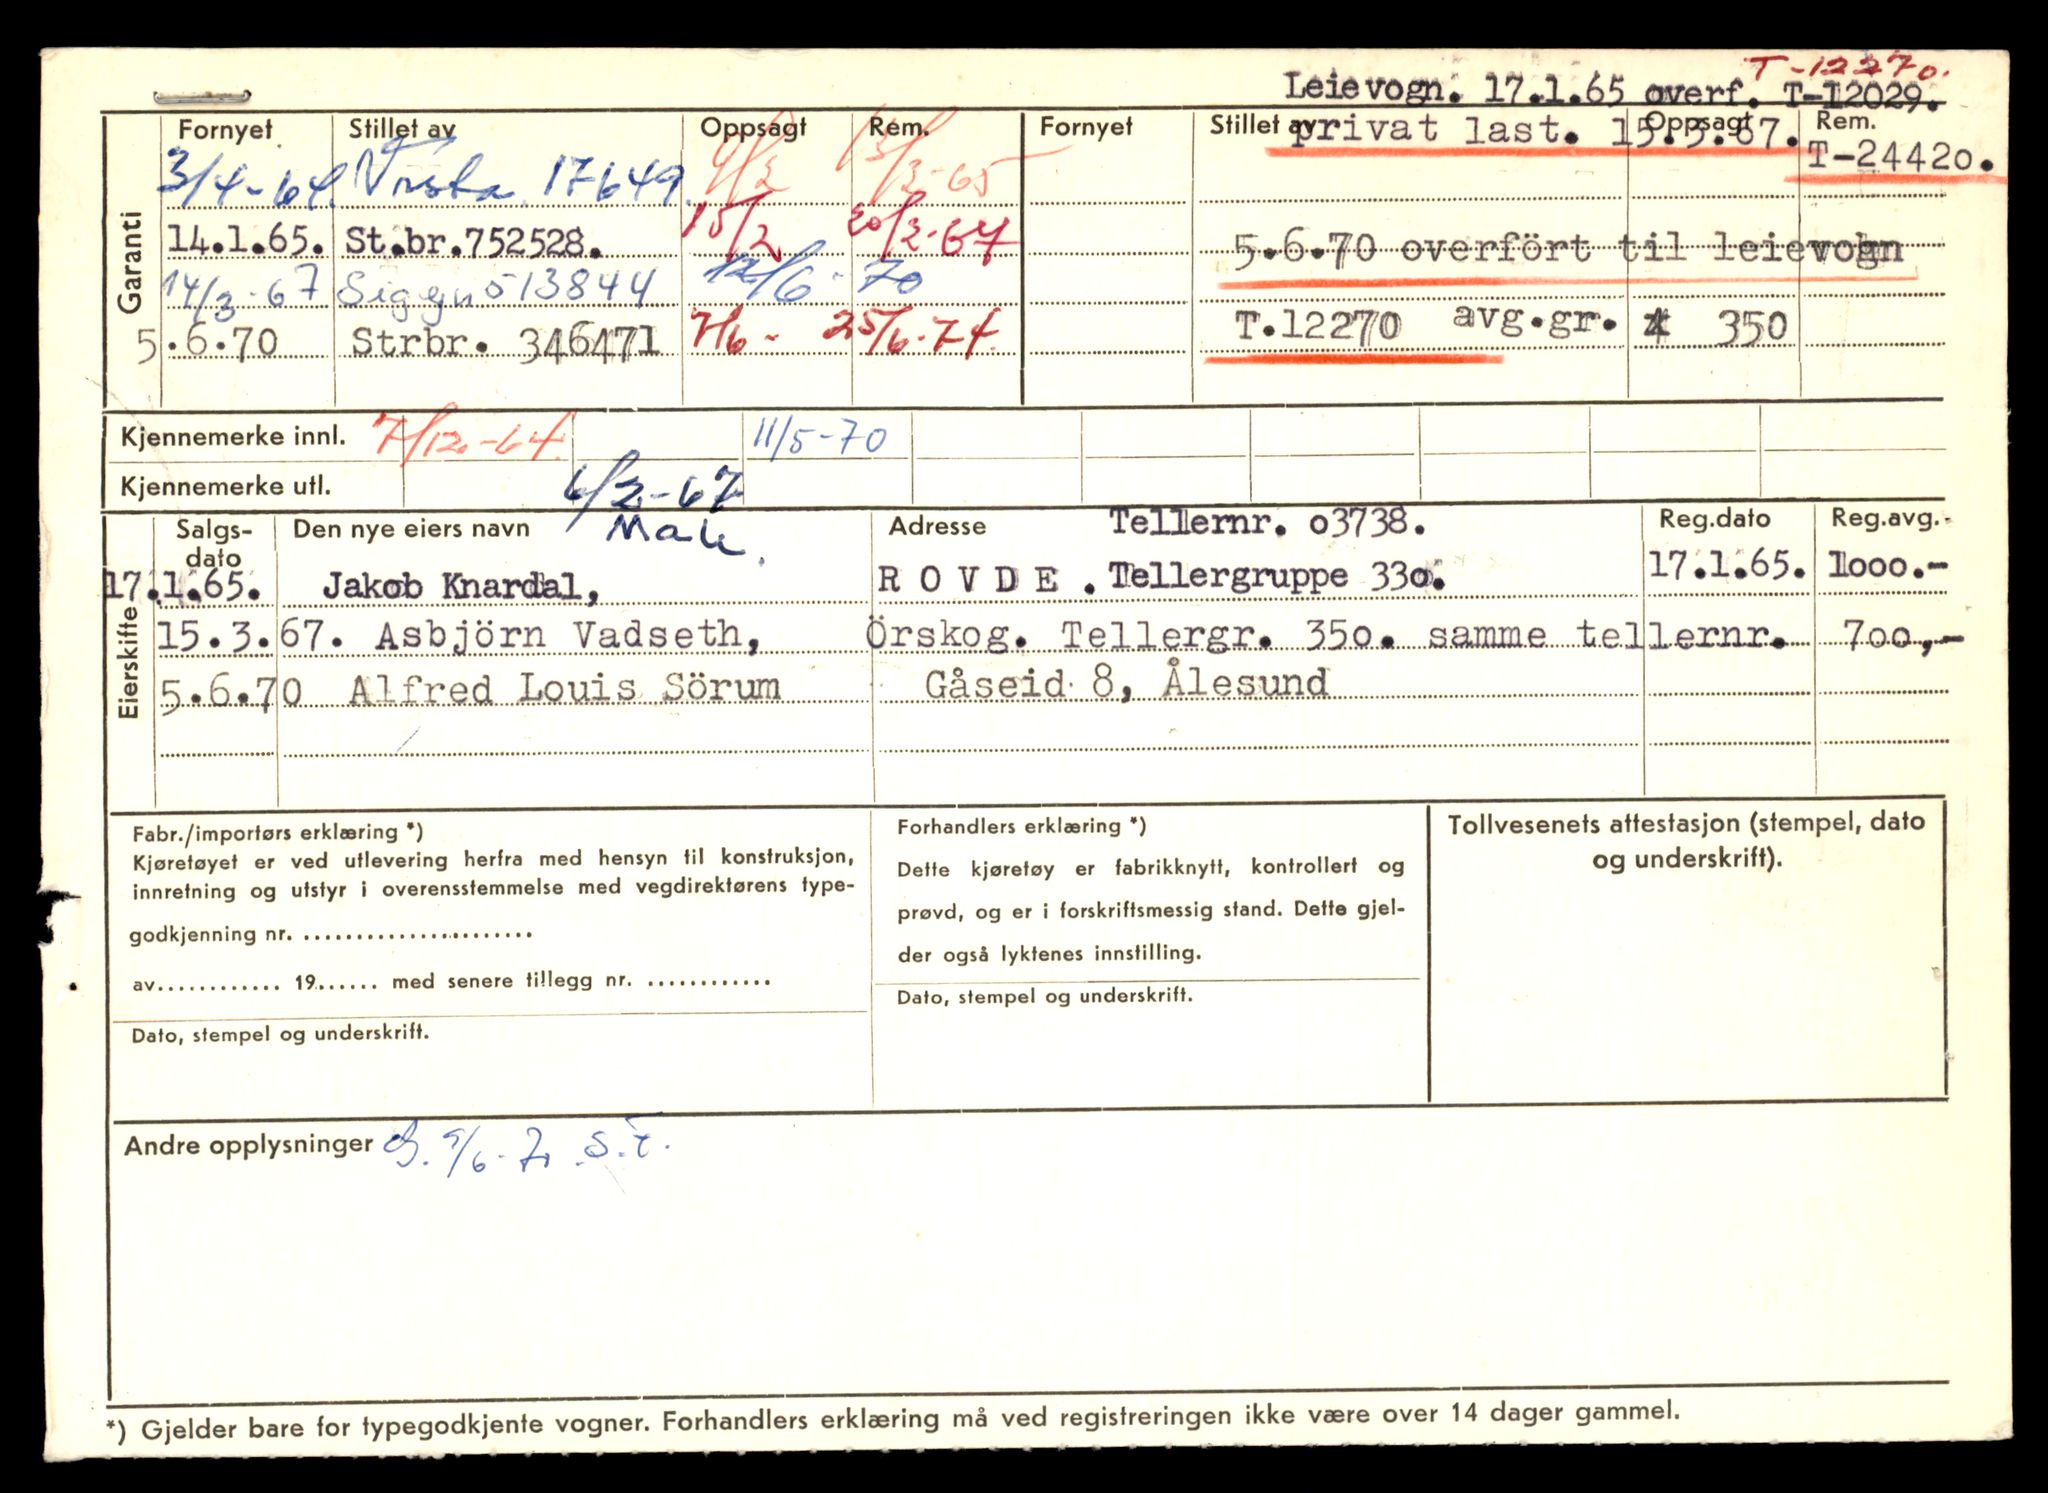 T-12270.
Leievogn. 17.1.65 overf. T-12029.
privat last. 15.3.67. T-24420.
Garanti
Fornyet Stillet av Oppsagt Rem. Fornyet Stillet av Oppsagt Rem.
3/4-64. Vesta 17649. 4/2 13/2-65
14.1.65. St.br.752528. 15/2 20/2-67 5.6.70 overfört til leievogn
14/3-67 Sigyn 513844 12/6-70
5.6.70 Strbr. 346471 7/6- 25/6-74. T.12270 avg.gr. 350
Kjennemerke innl. 7/12-64. 11/5-70
Kjennemerke utl. 6/2-67
Eierskifte
Salgs-dato Den nye eiers navn Adresse Tellernr. o3738. Reg.dato Reg.avg.
17.1.65. Jakob Knardal, ROVDE. Tellergruppe 33o. 17.1.65. 1000.-
15.3.67. Asbjörn Vadseth, Örskog. Tellergr. 35o. samme tellernr. 700,-
5.6.70 Alfred Louis Sörum Gåseid 8, Ålesund
Fabr./importørs erklæring *)
Kjøretøyet er ved utlevering herfra med hensyn til konstruksjon,
innretning og utstyr i overensstemmelse med vegdirektørens type-
godkjenning nr. ......................
av............ 19...... med senere tillegg nr. ............
Dato, stempel og underskrift.
Forhandlers erklæring *)
Dette kjøretøy er fabrikknytt, kontrollert og
prøvd, og er i forskriftsmessig stand. Dette gjel-
der også lyktenes innstilling.
Dato, stempel og underskrift.
Tollvesenets attestasjon (stempel, dato
og underskrift).
Andre opplysninger
*) Gjelder bare for typegodkjente vogner. Forhandlers erklæring må ved registreringen ikke være over 14 dager gammel.